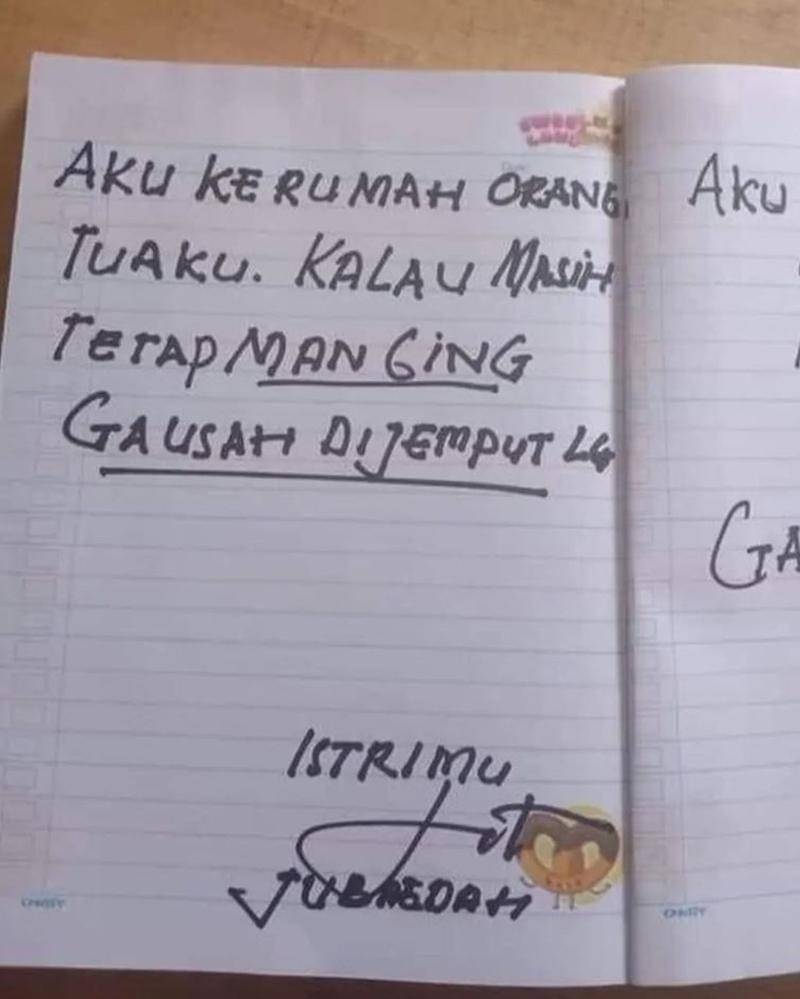 AKU KERUMAH ORANG
TUAKU. KALAU MASIH
TETAP MANGING
GAUSAH DIJEMPUT LG
ISTRIMU
JUBAEDAH
AKU
GA